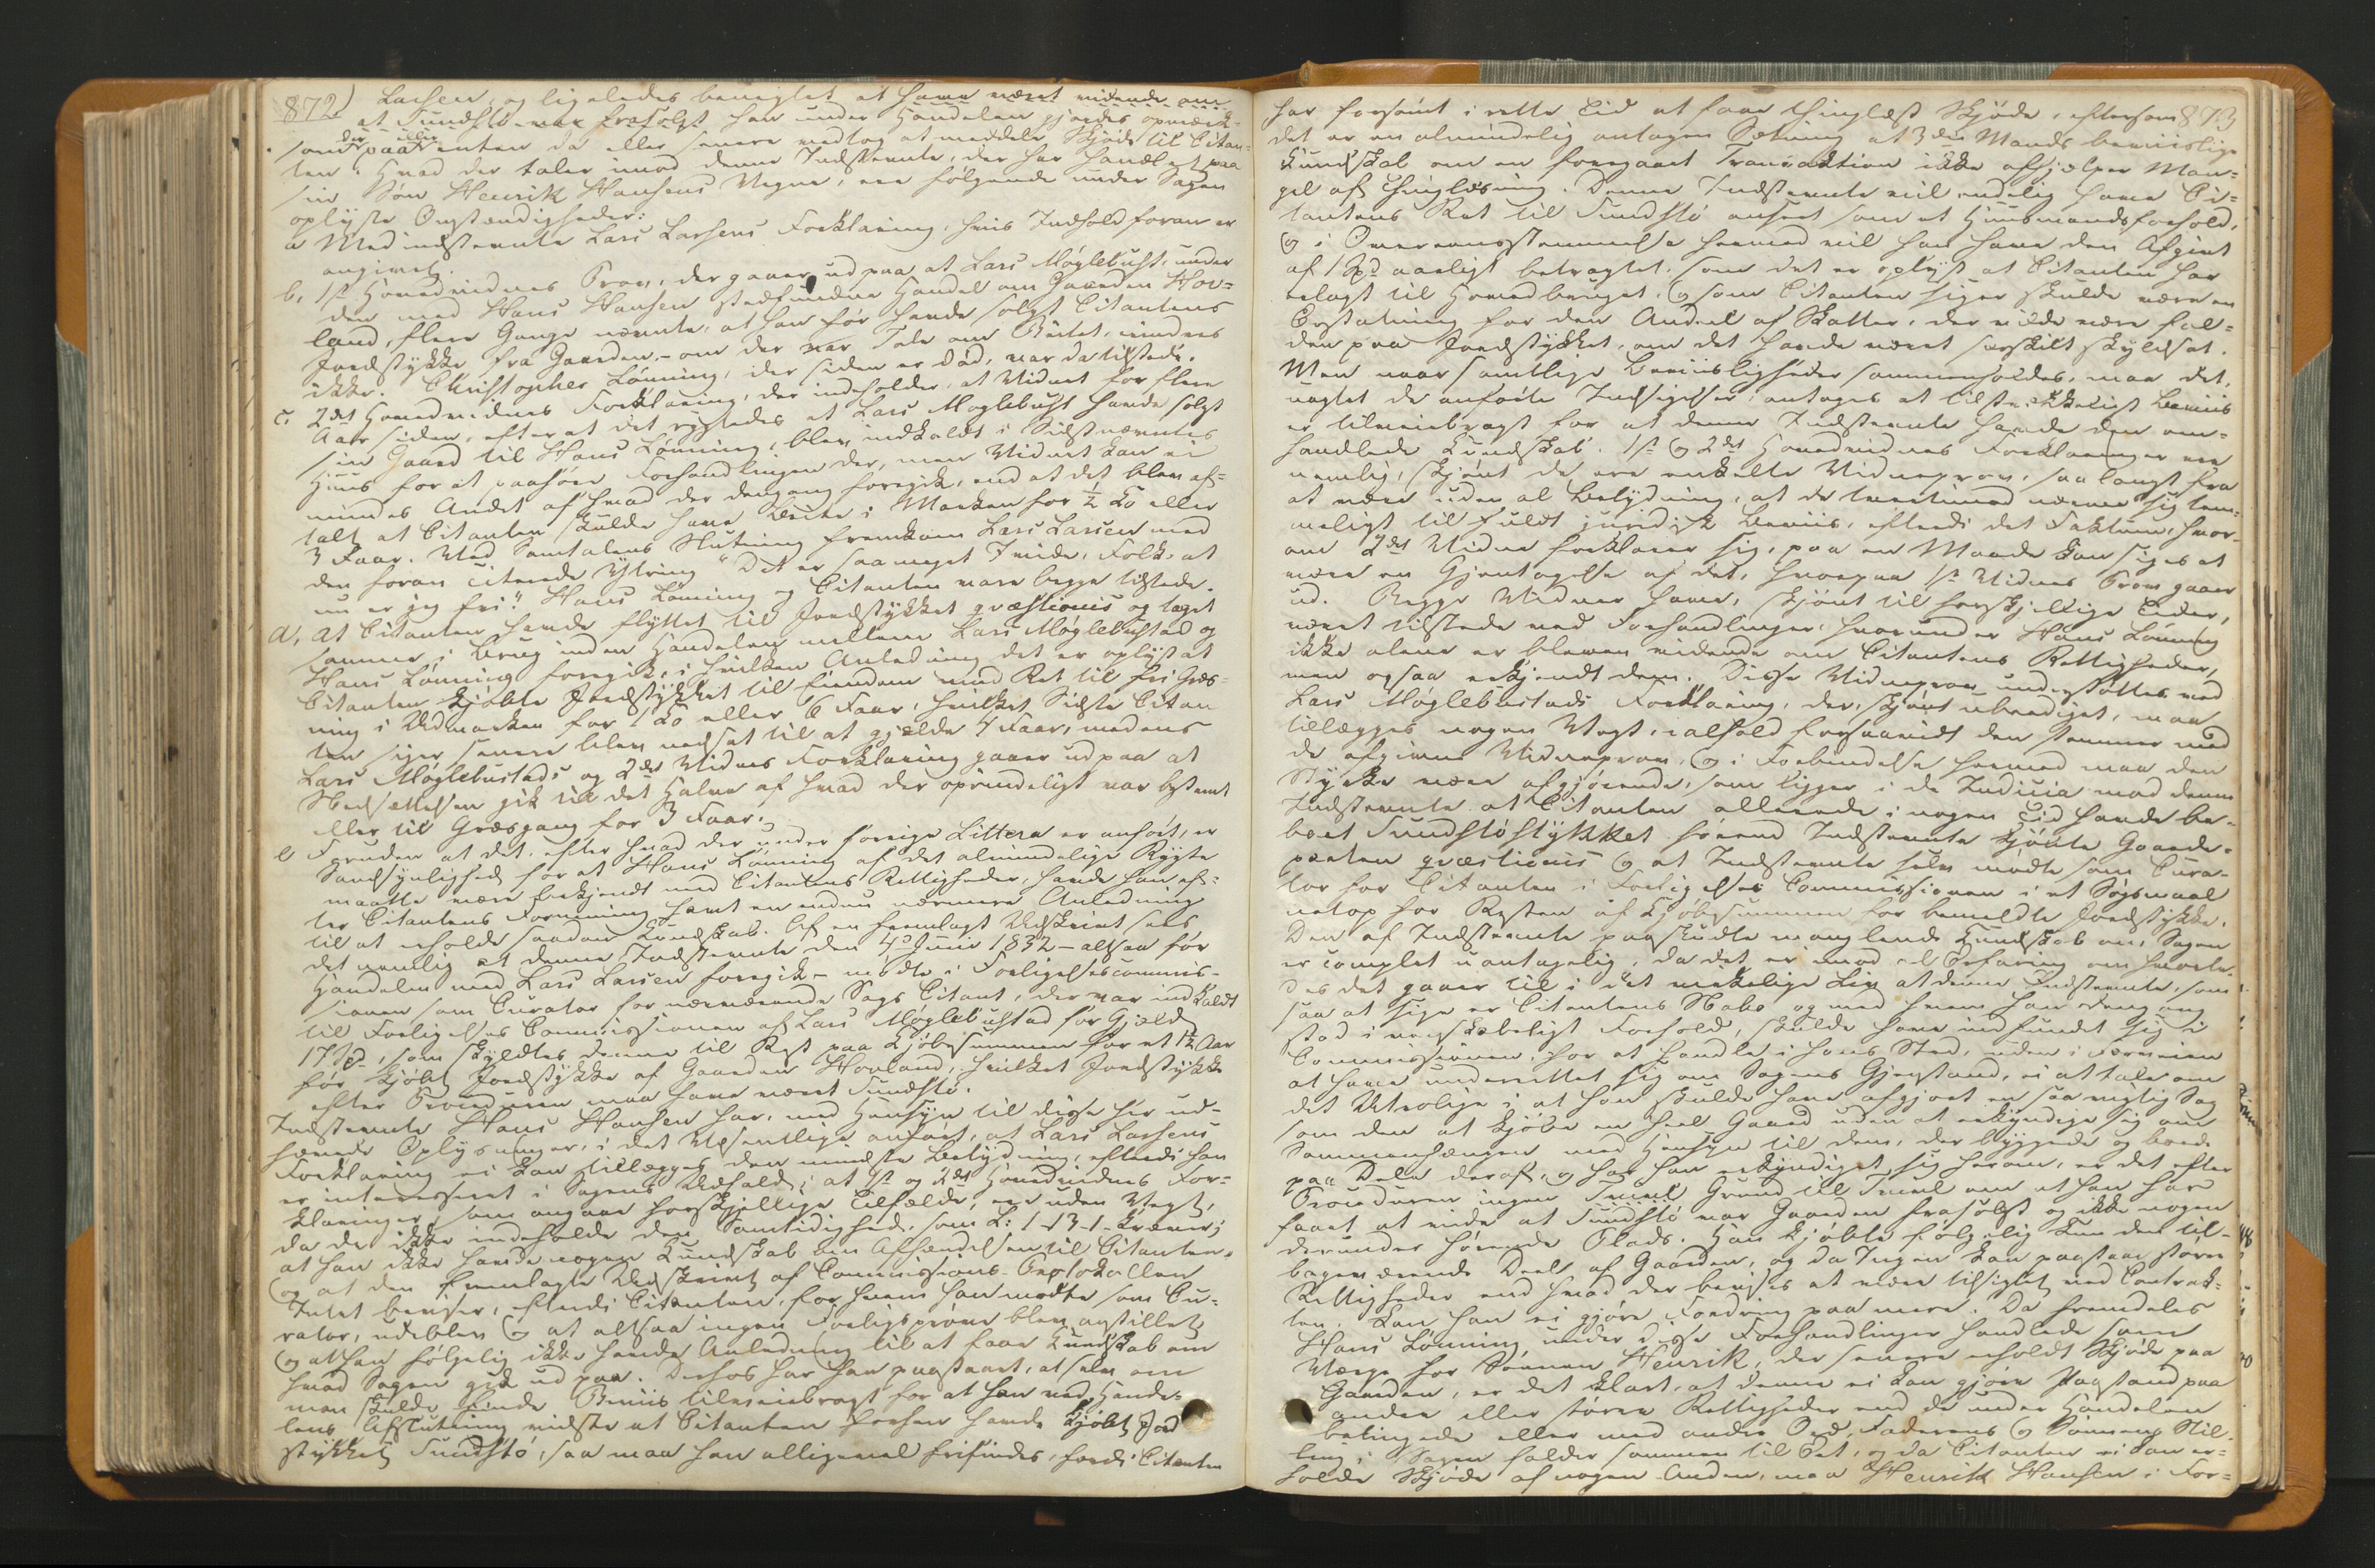 872)
Larsen, og ligeledes benegtet at have været vidende om
at Sundstø var frasolgt han under Handelen gjordes opmærk-
som derpaa eller enten da eller senere vedtog at meddele Skjøde til Citan-
ten. Hvad der taler imod denne Indstevnte, der har handlet paa
sin Søn Henrik Hansens Vegne, ere følgende under Sagen
oplyste Omstændigheder:
a Medindstevnte Lars Larsens Forklaring, hvis Indhold foran er
angivet.
b, 1st Hovedvidnes Prov, der gaaer ud paa at Lars Møglebust, under
den med Hans Hansen stedfundne Handel om Gaarden Hov-
land, flere Gange nævnte, at han før havde solgt Citantens
Jordstykke fra Gaarden, - om der var Tale om Beitet, mindes
ikke. Christopher Lønning, der siden er død, var da tilstede.
c. 2det Hovedvidnes Forklaring, der indeholder, at Vidnet for flere
Aar siden, efter at det rygtedes at Lars Møglebust havde solgt
sin Gaard til Hans Lønning, blev indkaldt i Sidstnævntes
Huus for at paahøre Forhandlingen der, men Vidnet kan ei
mindes Andet af hvad der dengang foregik, end at det blev af-
talt at Citanten skulde have Beite i Marken for ½ Ko eller
3 Faar. Ved Samtalens Slutning fremkom Lars Larsen med
den foran citerede Yttring "Det er saameget I vide, Folk at
nu er jeg fri." Hans Lønning og Citanten vare begge tilstede.
d, At Citanten havde flyttet til Jordstykket quæstionis og taget
samme i Brug inden Handelen mellem Lars Møglebustad og
Hans Lønning foregik, i hvilken Anledning det er oplyst at
Citanten kjøbte Jordstykket til Eiendom med Ret til fri Græs-
ning i Udmarken for 1 Ko eller 6 Faar, hvilket Sidste Citan-
ten siger senere blev nedsat til at gjælde 4 Faar, medens
Lars Møglebustads og 2det Vidnes Forklaring gaaer ud paa at
Nedsættelsen gik til det Halve af hvad der oprindeligt var bestemt
eller til Græsgang for 3 Faar.
e Foruden at det, efter hvad der under forrige Littera er anført, er
Sandsynlighed for at Hans Lønning af det almindelige Rygte
maatte være bekjendt med Citantens Rettigheder, havde han ef-
ter Citantens Formening havt en endnu nærmere Anledning
til at erholde saadan Kundskab. Af en fremlagt Udskrivt sees
det nemlig at denne Indstevnte den 4de Juni 1832 - altsaa før
Handelen med Lars Larsen foregik - mødte i Forligelsescommis-
sionen som Curator for nærværende Sags Citant, der var indkaldt
til Forligelses Commissionen af Lars Møglebustad for Gjæld
17 Spd, som skyldtes denne til Rest paa Kjøbesummen for et 1½ Aar
før kjøbt Jordstykke af Gaarden Hovland, hvilket Jordstykke
efter Proceduren maa have været Sundstø.
Indstevnte Hans Hansen har, med Hensyn til disse her ud-
hævede Oplysninger, i det Væsentlige anført, at Lars Larsens
Forklaring ei kan tillægges den mindste Betydning, efterdi han
er interesseret i Sagens Udfald; at 1ste og 2det Hovedvidnes For-
klaringer, som angaae forskjellige Tilfælde, ere uden Vægt,
da de ikke indeholde den Samtidighed, som L: 1-13-1 kræver;
at han ikke havde nogen Kundskab om Afhændelsen til Citanten,
og at den fremlagte Udskrivt af Commissions-Protokollen
Intet beviser, efterdi Citanten, for hvem han mødte som Cu-
rator, udeblev og at altsaa ingen Forligsprøve blev anstillet
og at han følgelig ikke havde Anledning til at faae Kundskab om
hvad Sagen gik ud paa. Derhos har han paastaaet, at selv om
man skulde finde Beviis tilveiebragt for at han ved Hande-
lens Afslutning vidste at Citanten forhen havde kjøbt Jord-
stykket Sundstø, saa maa han alligevel frifindes, fordi Citanten
873
har forsømt i rette Tid at faae thinglæst Skjøde, eftersom
det er en almindelig antagen Sætning at 3die Mands beviislige
Kundskab om en foregaaet Transaktion ikke afhjelper Man-
gel af Thinglæsning. Denne Indstevnte vil endelig have Ci-
tantens Ret til Sundstø anseet som et Huusmandsforhold,
og i Overeensstemmelse hermed vil han have den Afgivt
af 1 Spd aarligt betragtet, som det er oplyst at Citanten har
erlagt til Hovedbruget, og som Citanten siger skulde være en
Erstatning for den Andeel af Skatter, der vilde være fal-
den paa Jordstykket, om det havde været særskilt skyldsat.
Men naar samtlige Beviisligheder sammenholdes, maa det,
uagtet de anførte Indsigelser, antages at tilstrækkeligt Beviis
er tilveiebragt for at denne Indstevnte havde den om-
handlede Kundskab. 1st og 2det Hovedvidnes Forklaringer ere
nemlig, skjønt de ere enkelte Vidneprov, saa langt fra
at være uden al Betydning, at de tvertimod nærme sig tem-
meligt til fuldt juridisk Beviis, efterdi det Faktum, hvor-
om 2det Vidne forklarer sig, paa en Maade kan siges at
være en Gjentagelse af det, hvorpaa 1st Vidnes Prov gaaer
ud. Begge Vidner have, skjønt til forskjellige Tider,
været tilstede ved Forhandlinger, hvorunder Hans Lønning
ikke alene er bleven vidende om Citantens Rettigheder,
men ogsaa erkjendt dem. Disse Vidneprov understøttes ved
Lars Møglebustads Forklaring, der, skjønt ubeediget, maa
tillægges nogen Vægt, ialfald forsaavidt den stemmer med
de afgivne Vidneprov, og i Forbindelse hermed maa den
Styrke være afgjørende, som ligger i de Indicia mod denne
Indstevnte at Citanten allerede i nogen Tid havde be-
boet Sundstøstykket førend Indstevnte kjøbte Gaards-
parten quæstionis og at Indstevnte selv mødte som Cura-
tor for Citanten i Forligelses Commissionen i et Søgsmaal
netop for Resten af Kjøbesummen for bemeldte Jordstykke.
Den af Indstevnte paaskudte manglende Kundskab om Sagen
er complet uantagelig, da det er imod al Erfaring om hvorle-
des det gaaer til i det virkelige Liv at denne Indstevnte, som
saa at sige er Citantens Nabo og med hvem han dengang
stod i venskabeligt Forhold, skulde have indfundet sig i
Commissionen, for at handle i hans Sted, uden i Forveien
at have underrettet sig om Sagens Gjenstand, ei at tale om
det Utrolige i at han skulde have afgjort en saa vigtig Sag
som den at kjøbe en heel Gaard uden at erkyndige sig om
Sammenhængen med Hensyn til dem, der byggede og boede
paa Dele deraf, og har han erkyndiget sig herom, er det efter
Proceduren ingen Grund til Tvivl om at han har
faaet at vide at Sundstø var Gaarden frasolgt og ikke nogen
derunder hørende Plads. Han kjøbte følgelig kun den til-
bageværende Deel af Gaarden, og da Ingen kan paastaae større
Rettigheder end hvad der bevises at være tilsigtet ved Contrak-
ten, kan han ei gjøre Fordring paa mere. Da fremdeles
Hans Lønning under disse Forhandlinger handlede som
Værge for Sønnen Henrik, der senere erholdt Skjøde paa
Gaarden, er det klart, at denne ei kan gjøre Paastand paa
anden eller større Rettigheder end de under Handelen
betingede eller med andre Ord, Faderens og Sønnens Stil-
ling i Sagen falder sammen til Eet, og da Citanten ei kan er-
holde Skjøde af nogen Anden, maa Henrik Hansen i For-